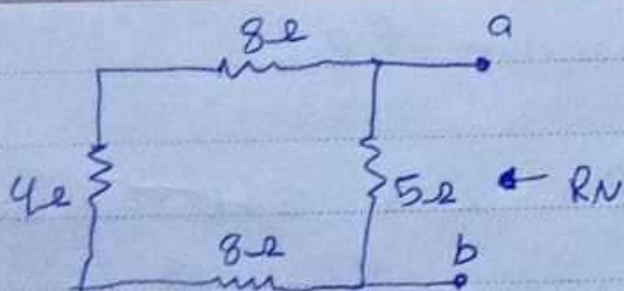 8Ω
a
4Ω
5Ω
RN
8Ω
b